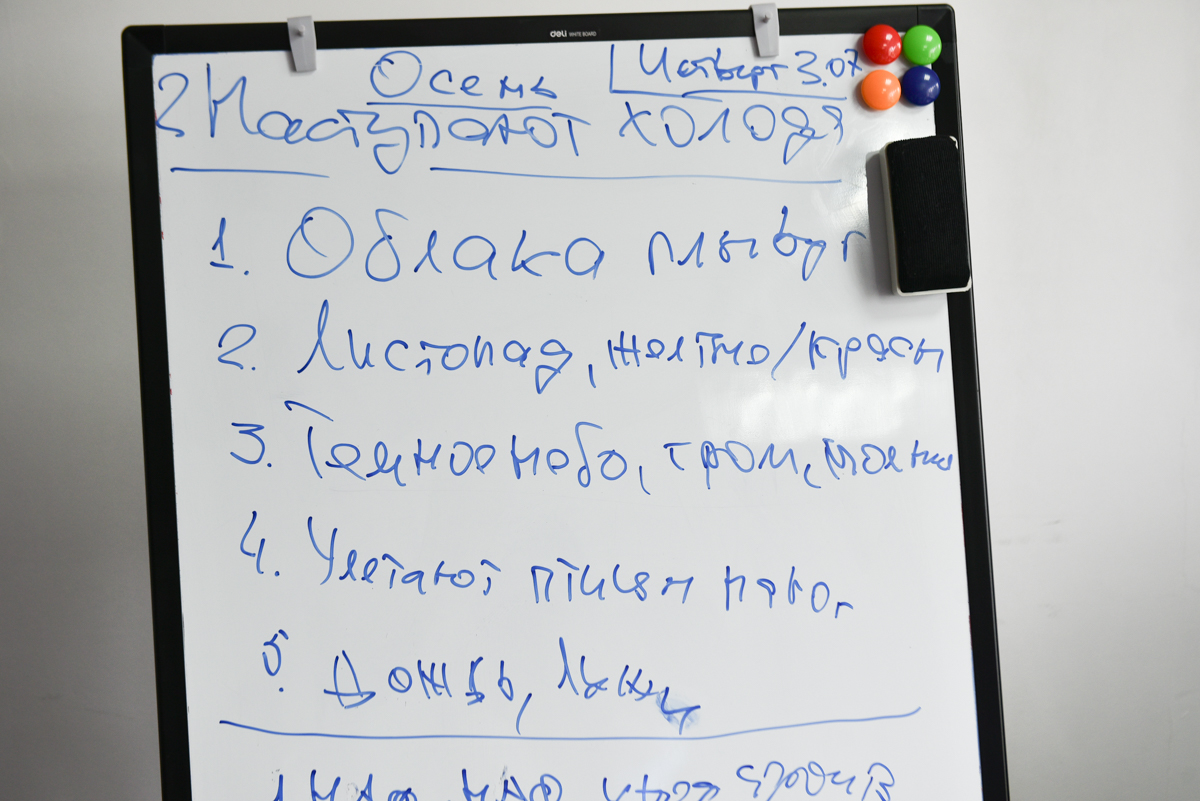 deli WHITE BOARD
Осень
Четверг 3.07
2 Наступают холода
1. Облака плывут
2. Листопад, желтно/красн
3. Темное небо, гром, молния
4. Улетают птицы на юг
5. Дождь, лужи